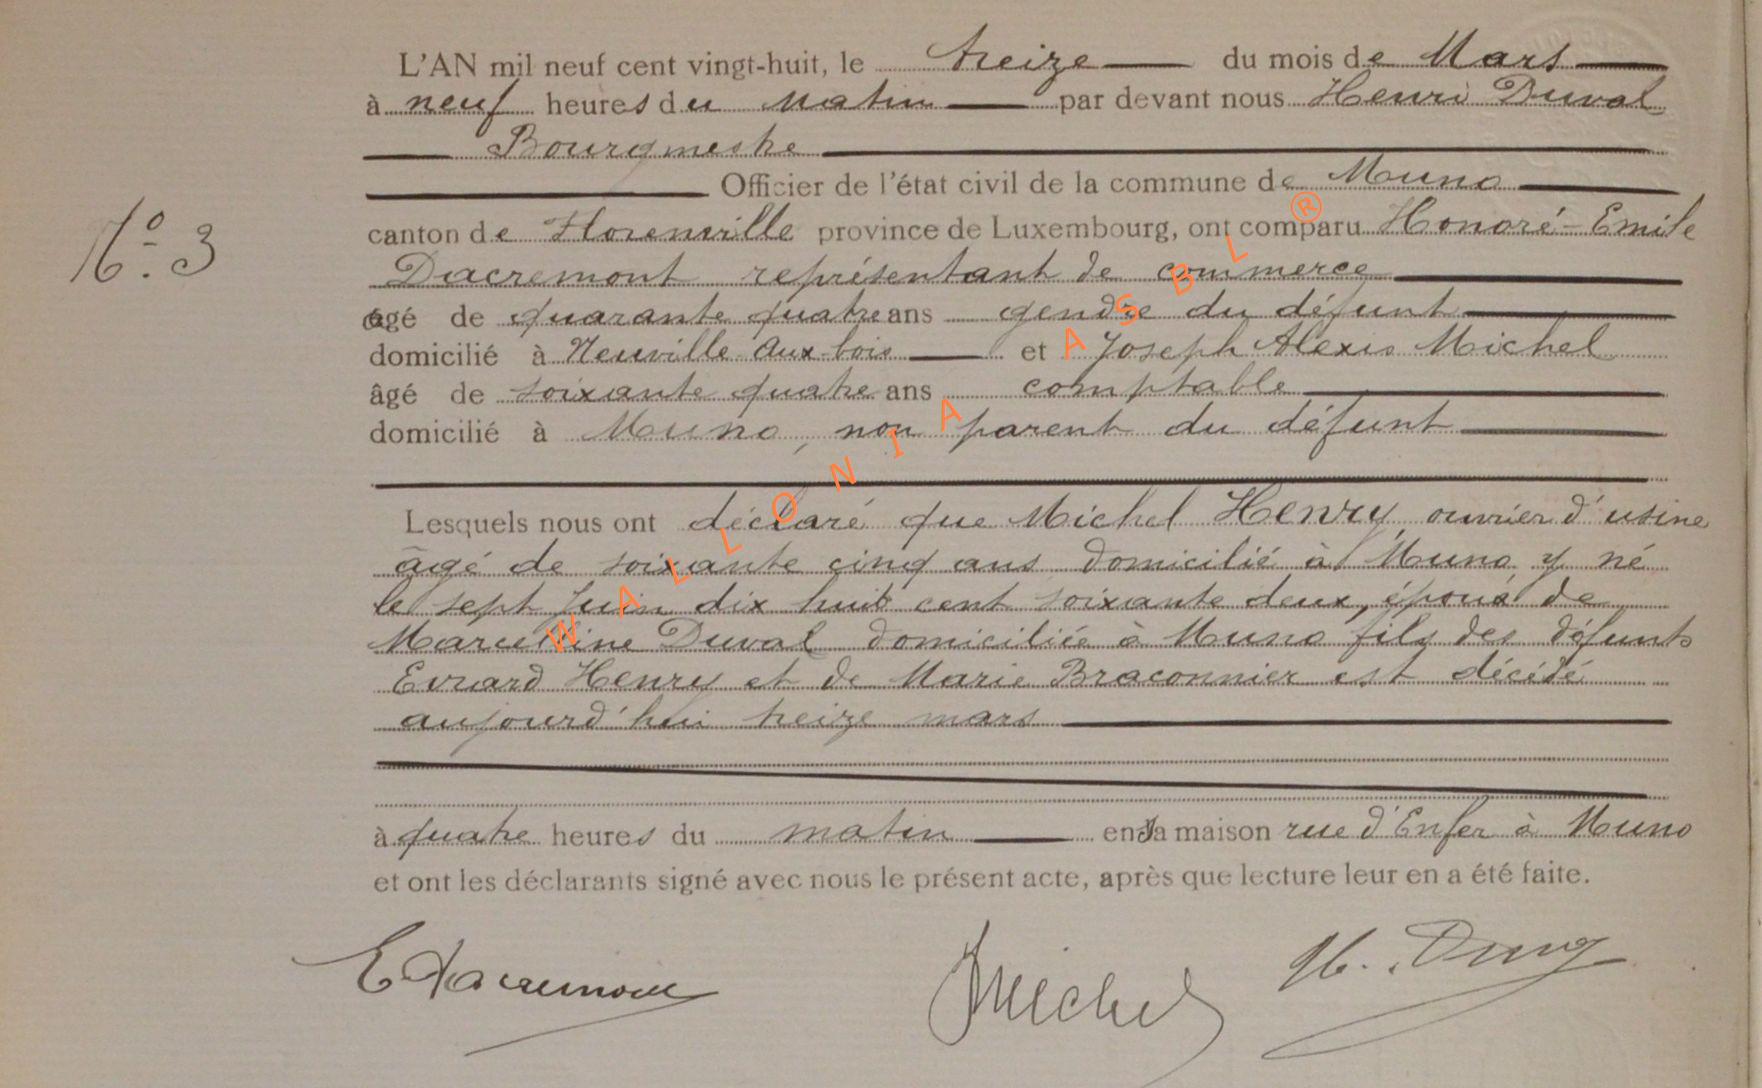 L'AN mil neuf cent vingt-huit, le treize du mois de Mars
à neuf heures du matin par devant nous Henri Duval
Bourgmestre
Officier de l'état civil de la commune de Muno
canton de Florenville province de Luxembourg, ont comparu Honoré-Emile
Dacremont représentant de commerce
âgé de quarante quatre ans gendre du défunt
domicilié à Neuville aux bois et Joseph Alexis Michel
âgé de soixante quatre ans comptable
domicilié à Muno, non parent du défunt
No. 3
Lesquels nous ont déclaré que Michel Henry, ouvrier d'usine
âgé de soixante cinq ans domicilié à Muno y né
le sept juin dix huit cent soixante deux, époux de
Marcelline Duval domiciliée à Muno fils des défunts
Evrard Henry et de Marie Braconnier est décédé
aujourd'hui treize mars
à quatre heures du matin en sa maison rue d'Enfer à Muno
et ont les déclarants signé avec nous le présent acte, après que lecture leur en a été faite.
E Dacremont
JMichel
H. Duval
WALLONIA ASBL ®